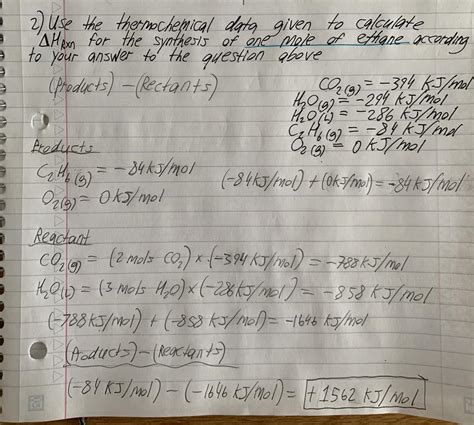 2) Use the thermochemical data given to calculate
ΔHRxn for the synthesis of one mole of ethane according
to your answer to the question above
(Products) - (Rectants)
CO2(g) = -394 KJ/mol
H2O(g) = -294 KJ/mol
H2O(l) = -286 KJ/mol
C2H6(g) = -84 KJ/mol
O2(g) = 0 KJ/mol
Products
C2H6(g) = -84 KJ/mol
O2(g) = 0 KJ/mol
(-84 KJ/mol) + (0 KJ/mol) = -84 KJ/mol
Reactant
CO2(g) = (2 mols CO2) × (-394 KJ/mol) = -788 KJ/mol
H2O(l) = (3 mols H2O) × (-286 KJ/mol) = -858 KJ/mol
(-788 KJ/mol) + (-858 KJ/mol) = -1646 KJ/mol
(Products) - (Reactants)
(-84 KJ/mol) - (-1646 KJ/mol) = +1562 KJ/mol